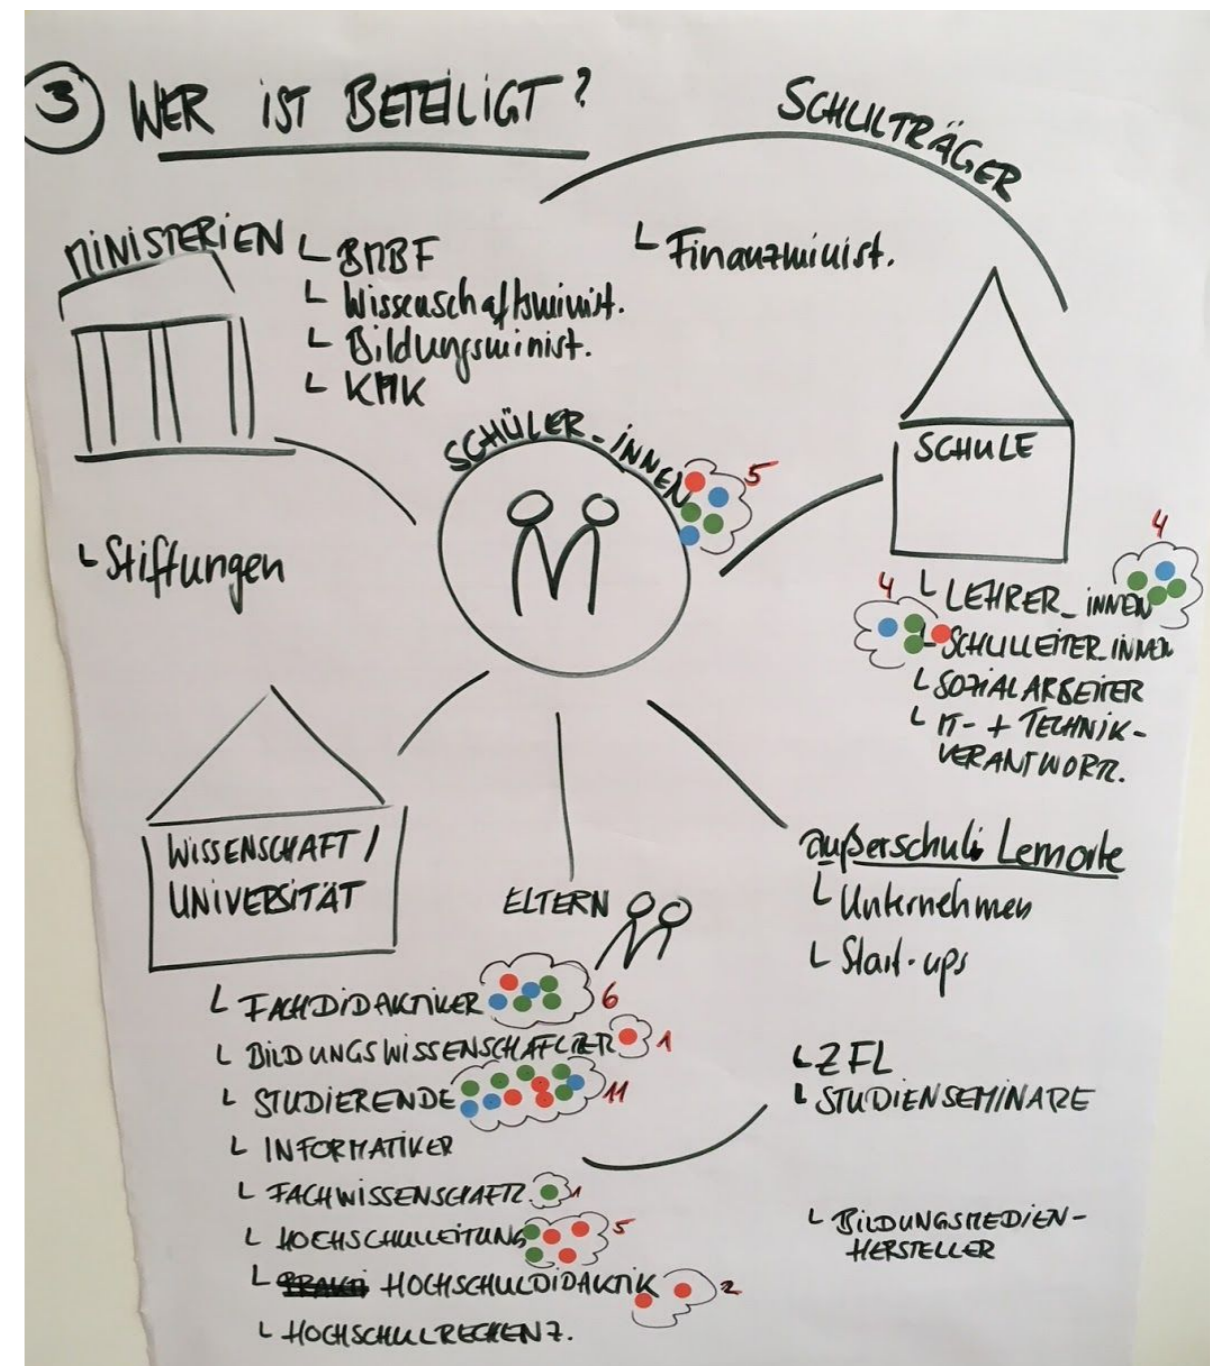 3 WER IST BETEILIGT?
SCHULTRÄGER
MINISTERIEN
└ BMBF
└ Wissenschaftsminist.
└ Bildungsminist.
└ KMK
└ Finanzminist.
└ Stiftungen
SCHÜLER_INNEN
5
SCHULE
4
└ LEHRER_INNEN
4
└ SCHULLEITER_INNEN
└ SOZIALARBEITER
└ IT- + TECHNIK-
VERANTWORTL.
WISSENSCHAFT /
UNIVERSITÄT
ELTERN
außerschul. Lernorte
└ Unternehmen
└ Start-ups
└ FACHDIDAKTIKER 6
└ BILDUNGSWISSENSCHAFTLER 1
└ STUDIERENDE 11
└ INFORMATIKER
└ FACHWISSENSCHAFTL. 1
└ HOCHSCHULLEITUNG 5
└ HOCHSCHULDIDAKTIK 2
└ HOCHSCHULRECHENZ.
└ ZFL
└ STUDIENSEMINARE
└ BILDUNGSMEDIEN-
HERSTELLER